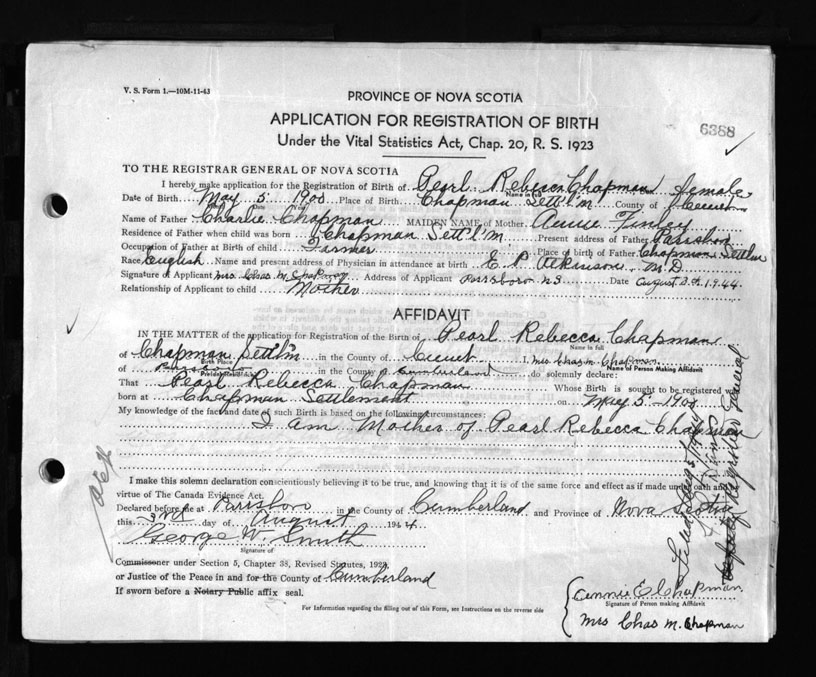 V. S. Form 1.—10M-11-43
PROVINCE OF NOVA SCOTIA
APPLICATION FOR REGISTRATION OF BIRTH
6388
Under the Vital Statistics Act, Chap. 20, R. S. 1923
TO THE REGISTRAR GENERAL OF NOVA SCOTIA
I hereby make application for the Registration of Birth of Pearl Rebecca Chapman female
Name in full
Date of Birth May 5 Place of Birth Chapman Settl'm County of
Name of Father Charlie Chapman MAIDEN NAME of Mother Annie
Residence of Father when child was born Chapman Settl'm Present address of Father Parrsboro
Occupation of Father at Birth of child Farmer Place of birth of Father Chapman
Race English Name and present address of Physician in attendance at birth E. P. Atkinson M D
Signature of Applicant Mrs Chas M Chapman Address of Applicant Parrsboro N S Date August 1944
Relationship of Applicant to child Mother
AFFIDAVIT
IN THE MATTER of the application for Registration of the Birth of Pearl Rebecca Chapman
Name in full
of Chapman Settl'm in the County of I, Mrs Chas M Chapman
Birth Place Name of Person Making Affidavit
of Parrsboro in the County of Cumberland do solemnly declare:
That Pearl Rebecca Chapman Whose Birth is sought to be registered was
born at Chapman Settlement on May 5
My knowledge of the fact and date of such Birth is based on the following circumstances:
I am Mother of Pearl Rebecca Chapman
I make this solemn declaration conscientiously believing it to be true, and knowing that it is of the same force and effect as if made under oath and by
virtue of The Canada Evidence Act.
Declared before me at Parrsboro in the County of Cumberland and Province of Nova Scotia
this 2nd day of August 1944
George W. Smith
Signature of
Commissoner under Section 5, Chapter 38, Revised Statutes, 1923,
or Justice of the Peace in and for the County of Cumberland
If sworn before a Notary Public affix seal.
Annie E Chapman
Signature of Person making Affidavit
Mrs Chas M. Chapman
For Information regarding the filling out of this Form, see Instructions on the reverse side
Deputy Registrar General